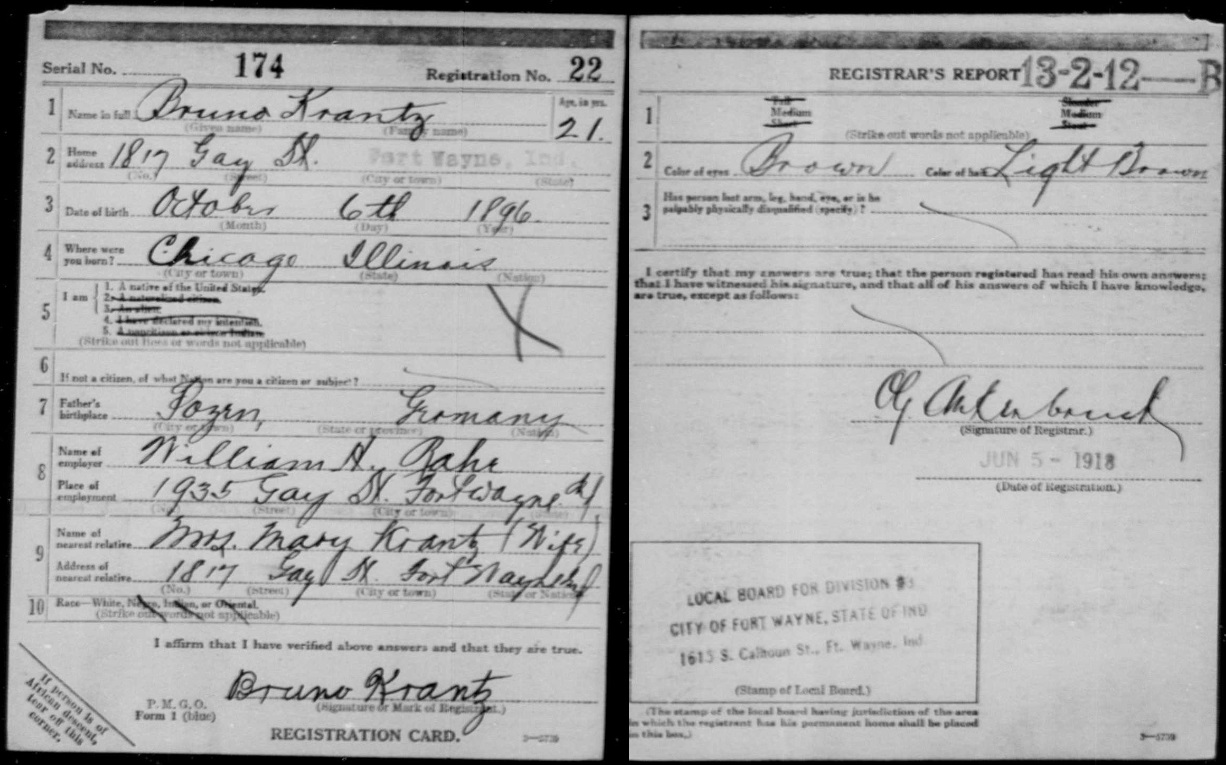 Serial No. 174 Registration No. 22
1 Name in full Bruno Krantz Age, in yrs. 21.
(Given name) (Family name)
2 Home address 1817 Gay St. Fort Wayne, Ind.
(No.) (Street) (City or town) (State)
3 Date of birth October 6th 1896.
(Month) (Day) (Year)
4 Where were you born? Chicago Illinois
(City or town) (State) (Nation)
5 I am
1. A native of the United States.
2. A naturalized citizen.
3. An alien.
4. I have declared my intention.
5. A noncitizen or citizen Indian.
(Strike out lines or words not applicable)
6 If not a citizen, of what Nation are you a citizen or subject?
7 Father's birthplace Pozen, Germany
(City or town) (State or province) (Nation)
8 Name of employer William H. Rahe
Place of employment 1935 Gay St. Fort Wayne Ind
(No.) (Street) (City or town) (State)
9 Name of nearest relative Mrs. Mary Krantz (Wife)
Address of nearest relative 1817 Gay St. Fort Wayne Ind
(No.) (Street) (City or town) (State or Nation)
10 Race—White, Negro, Indian, or Oriental.
(Strike out words not applicable)
I affirm that I have verified above answers and that they are true.
Bruno Krantz
(Signature or Mark of Registrant.)
P. M. G. O.
Form 1 (blue)
REGISTRATION CARD.
3—5739
If person is of
African descent,
tear off this
corner.
REGISTRAR'S REPORT 13-2-12—B
1 Tall Slender
Medium Medium
Short Stout
(Strike out words not applicable)
2 Color of eyes Brown Color of hair Light Brown
3 Has person lost arm, leg, hand, eye, or is he
palpably physically disqualified (specify)?
I certify that my answers are true; that the person registered has read his own answers;
that I have witnessed his signature, and that all of his answers of which I have knowledge,
are true, except as follows:
(Signature of Registrar.)
JUN 5 - 1918
(Date of Registration.)
LOCAL BOARD FOR DIVISION #1
CITY OF FORT WAYNE, STATE OF IND
1615 S. Calhoun St., Ft. Wayne, Ind.
(Stamp of Local Board.)
(The stamp of the local board having jurisdiction of the area
in which the registrant has his permanent home shall be placed
in this box.)
3—5739